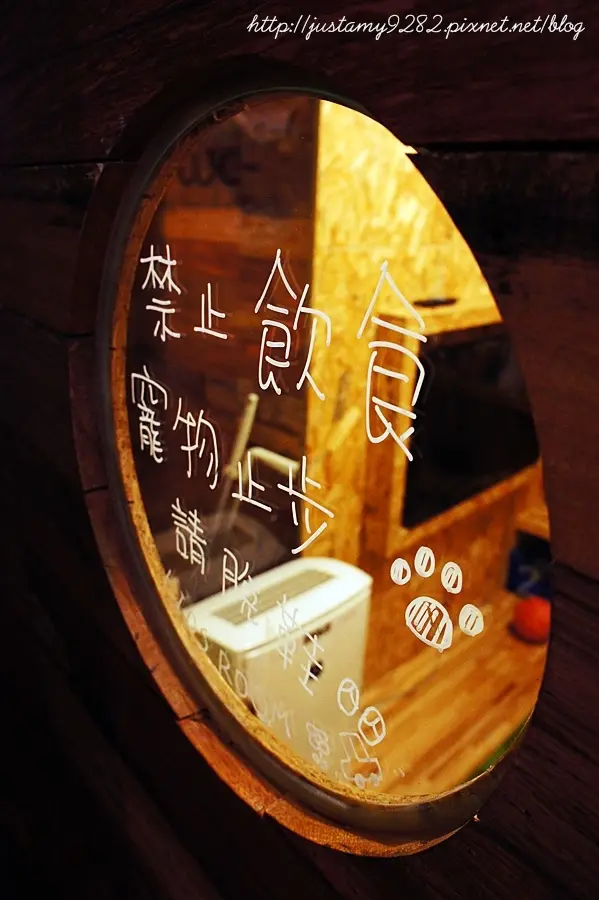 http://justamy9282.pixnet.net/blog
禁止飲食
寵物止步
請脫鞋
ROOM